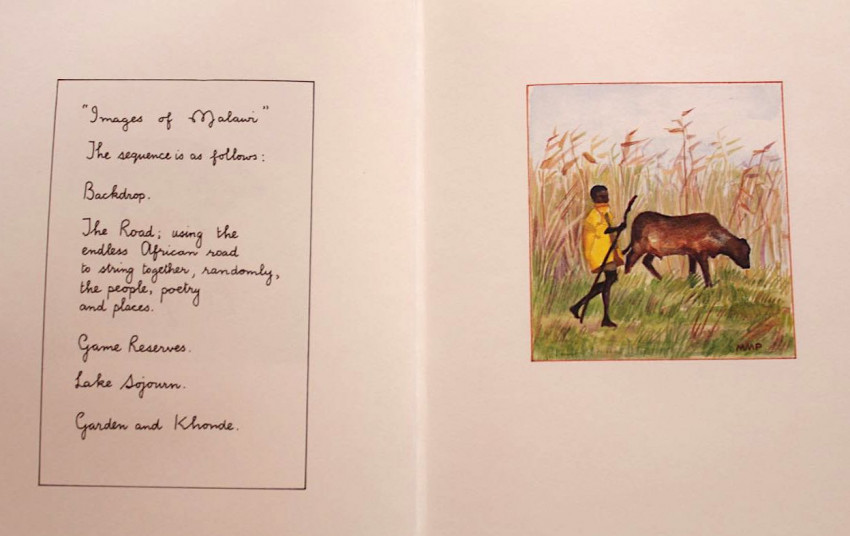 "Images of Malawi"
The sequence is as follows:
Backdrop.
The Road; using the
endless African road
to string together, randomly,
the people, poetry
and places.
Game Reserves.
Lake Sojourn.
Garden and Khonde.
MMP